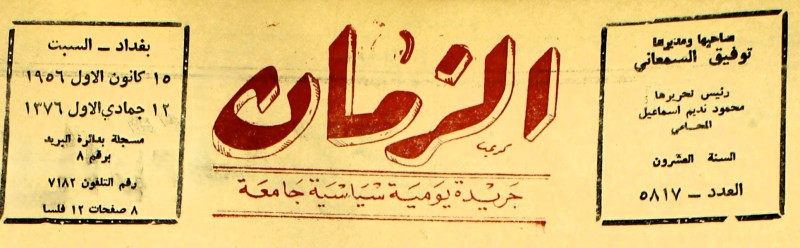 صاحبها ومديرها
توفيق السمعاني
رئيس تحريرها
محمود نديم اسماعيل
المحامي
السنة العشرون
العدد – ٥٨١٧
الزمان
جريدة يومية سياسية جامعة
بغداد – السبت
١٥ كانون الاول ١٩٥٦
١٢ جمادي الاول ١٣٧٦
مسجلة بدائرة البريد
برقم ٨
رقم التلفون ٧١٨٢
٨ صفحات ١٢ فلسا